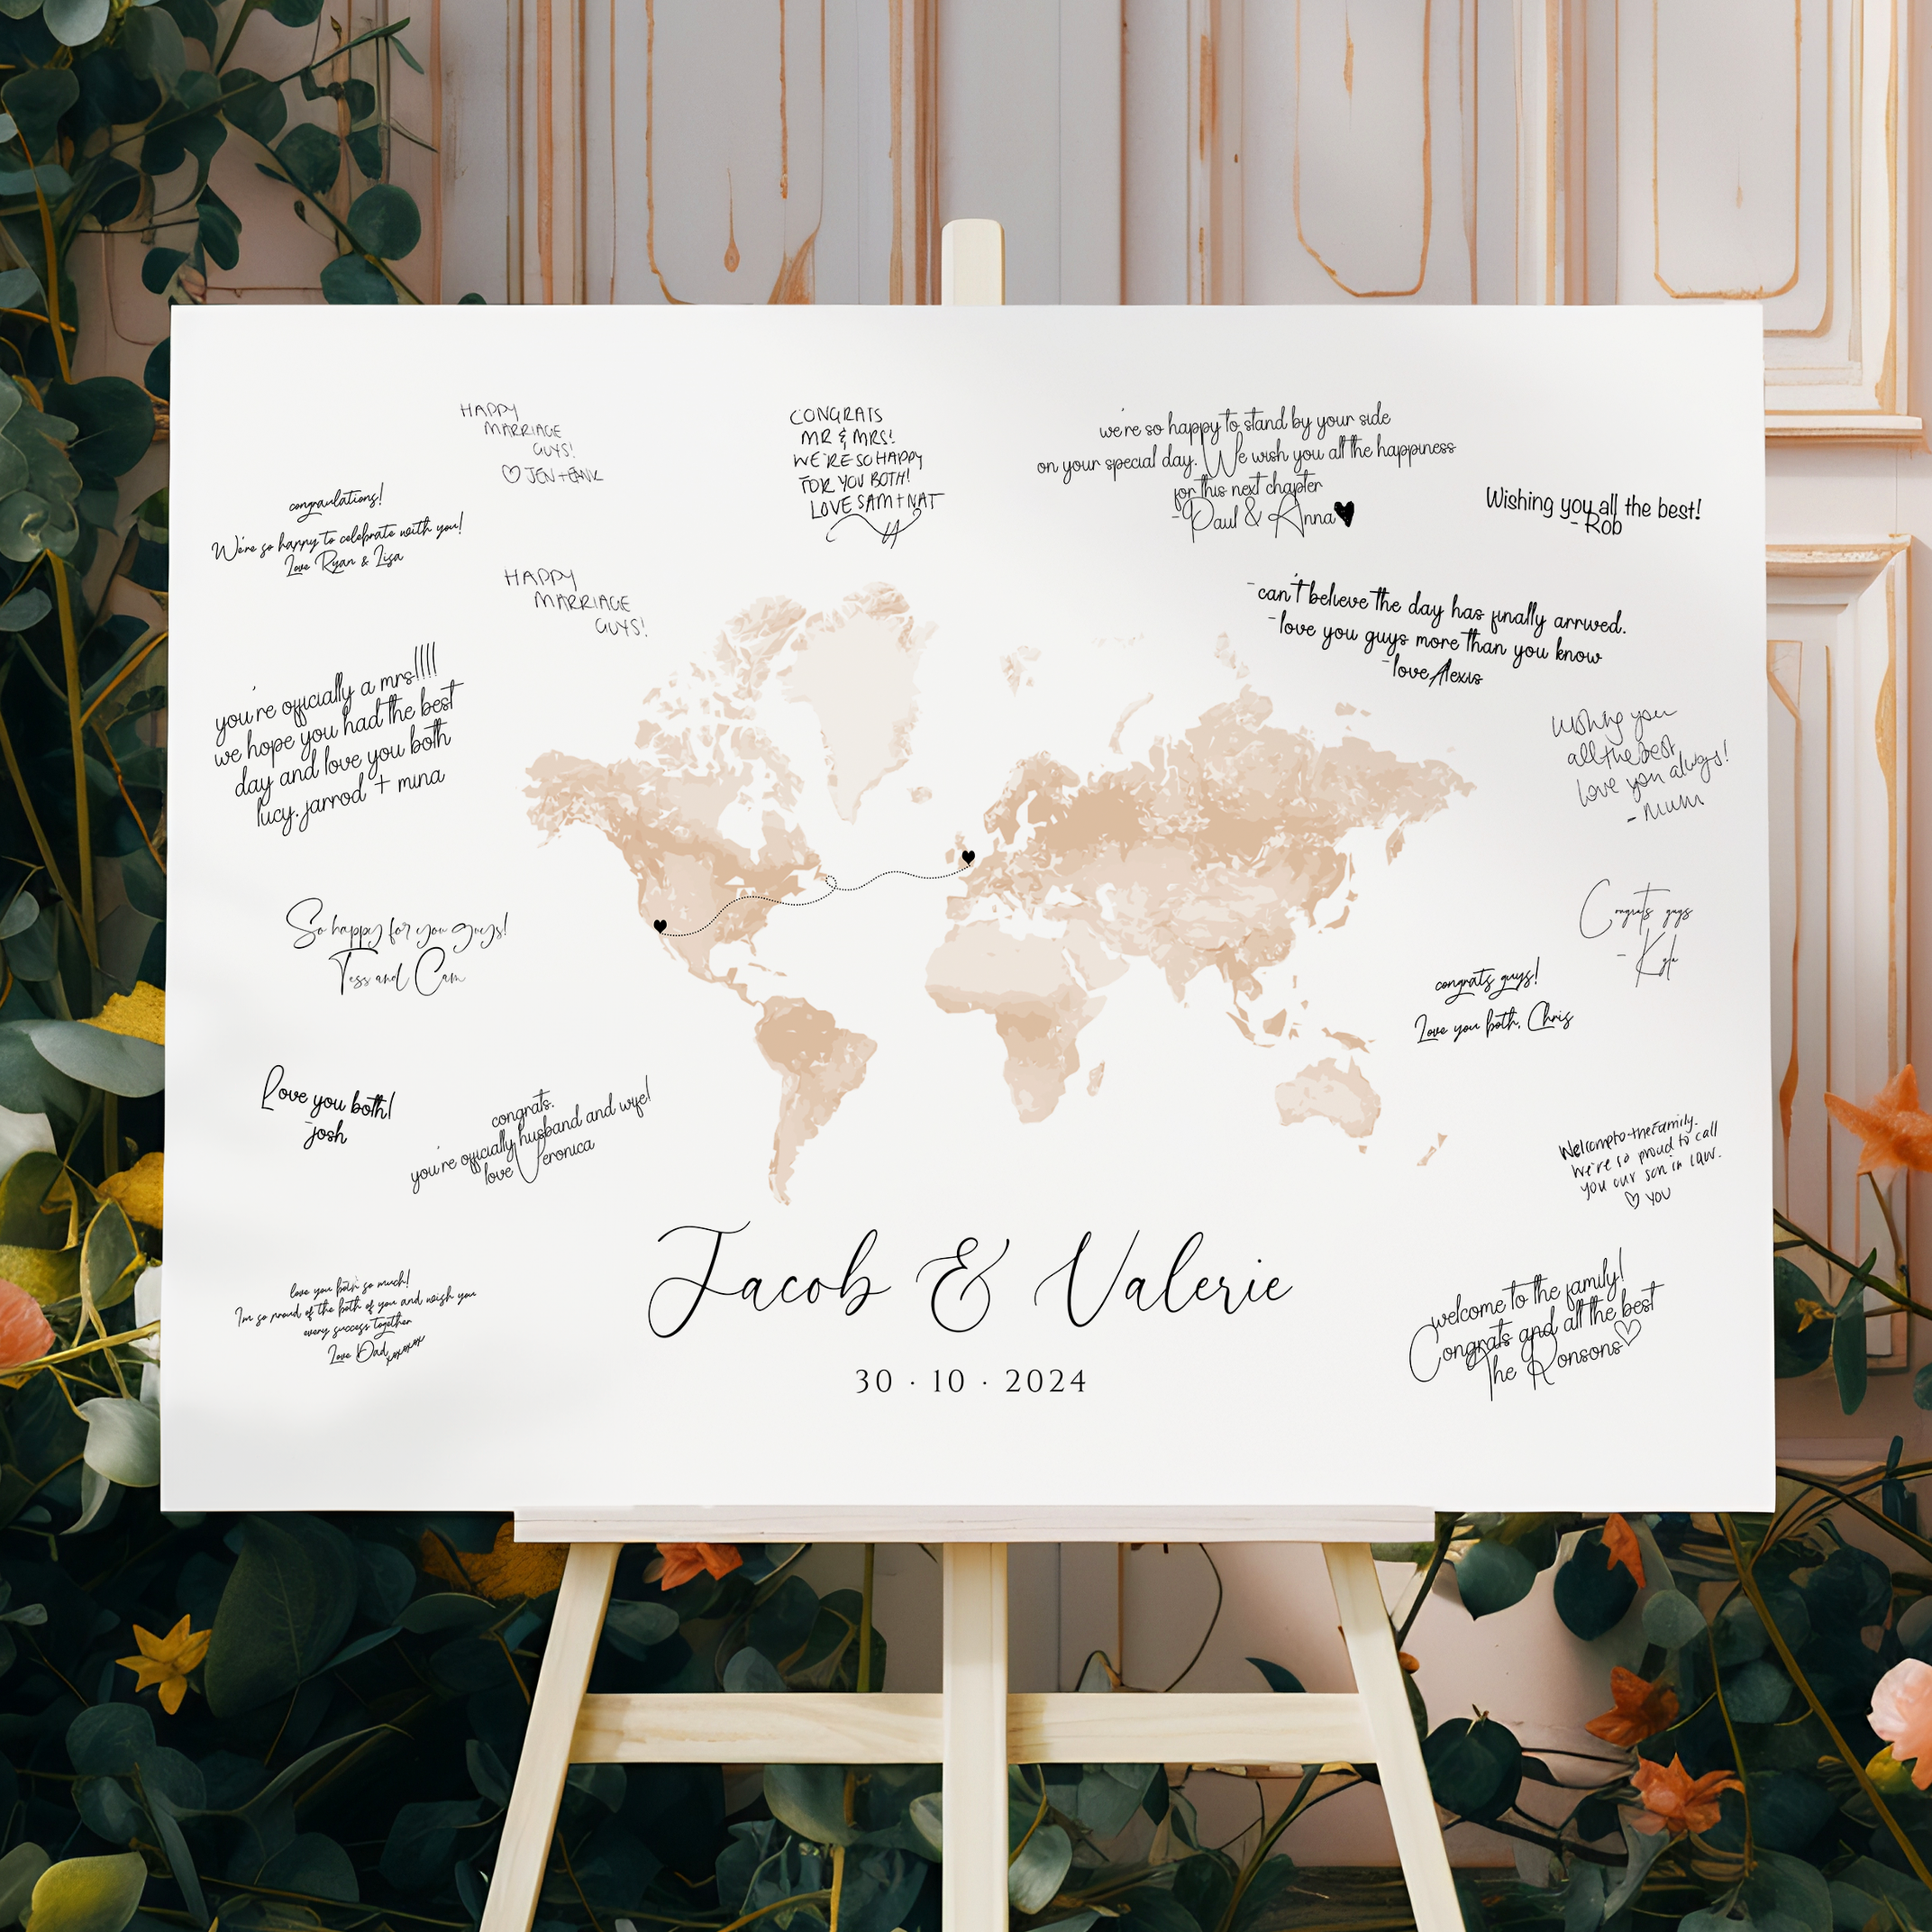 HAPPY
MARRIAGE
GUYS!
♡ JEN +
CONGRATS
MR & MRS!
WE'RE SO HAPPY
FOR YOU BOTH!
LOVE SAM + NAT
we're so happy to stand by your side
on your special day. We wish you all the happiness
for this next chapter
- Paul & Anna♥
Wishing you all the best!
- Rob
congraulations!
We're so happy to celebrate with you!
Love Ryan & Lisa
HAPPY
MARRIAGE
GUYS!
-can't believe the day has finally arrived.
-love you guys more than you know
-love Alexis
you're officially a mrs!!!!
we hope you had the best
day and love you both
lucy, jarrod + mina
wishing you
all the best
love you always!
- Mum
So happy for you guys!
Tess and Cam
Congrats guys
- Kyle
congrats guys!
Love you both, Chris
Love you both!
-josh
congrats.
you're officially husband and wife!
love Veronica
Welcome to the family.
We're so proud to call
you our son in law.
♡ YOU
love you both so much!
I'm so proud of the both of you and wish you
every success together
Love Dad xoxoxox
Jacob & Valerie
30 · 10 · 2024
welcome to the family!
Congrats and all the best
The Ronsons♡